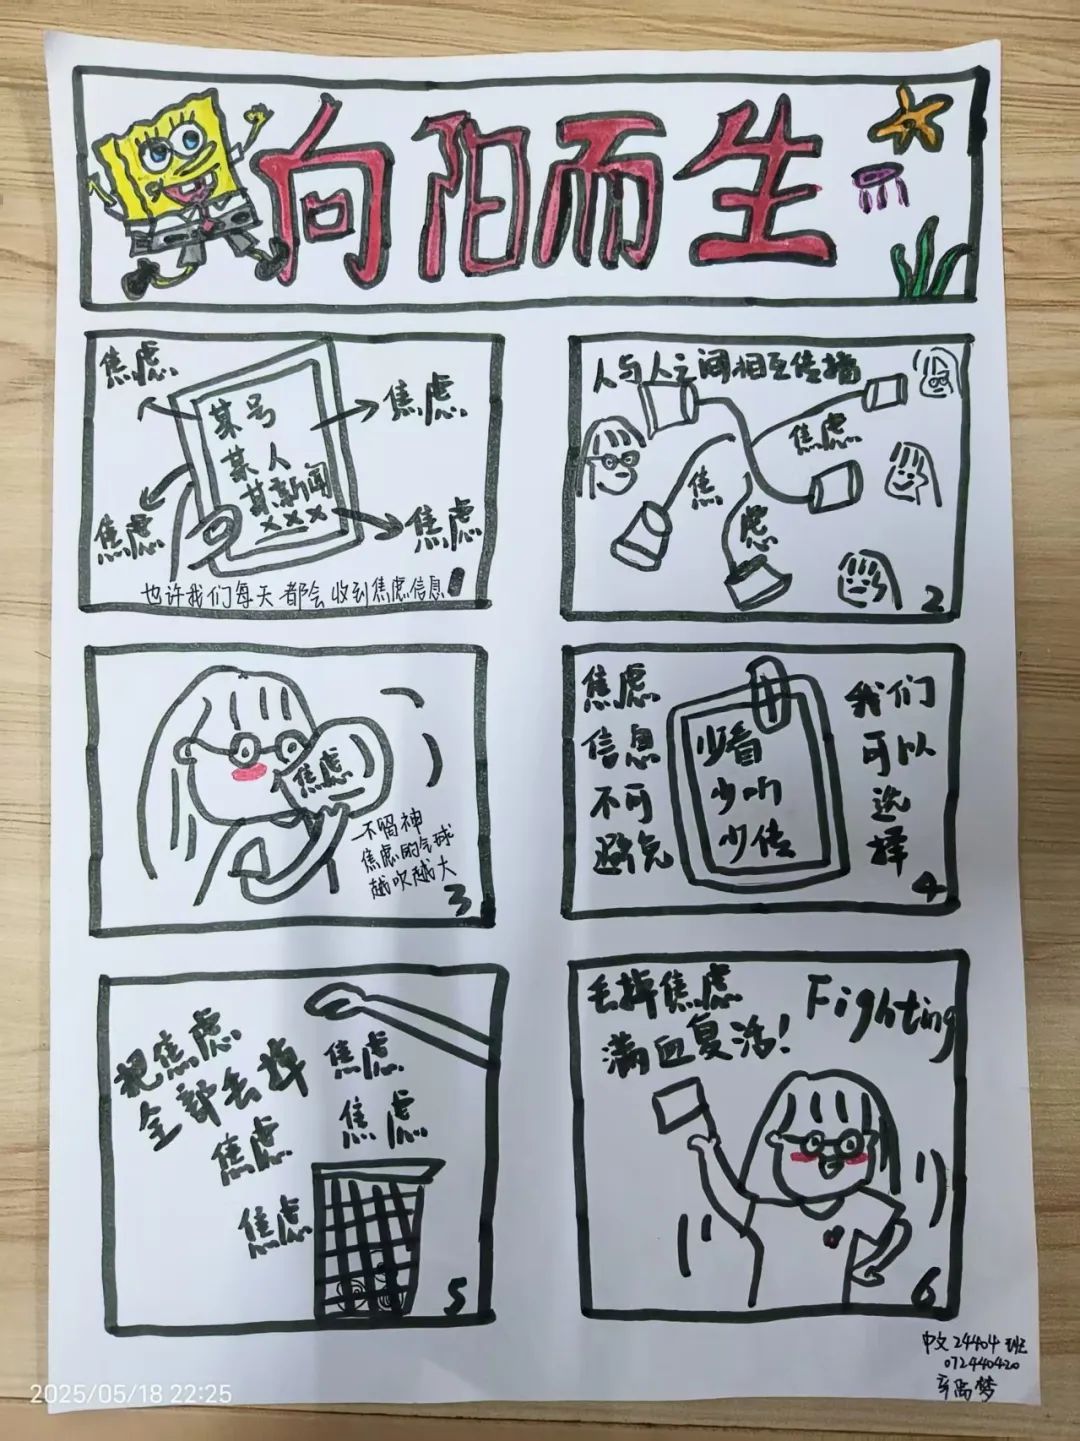 向阳而生
焦虑
焦虑
某号
某人
某新闻
×××
焦虑
焦虑
也许我们每天都会收到焦虑信息
1
人与人之间相互传播
焦虑
焦
虑
2
焦虑
不留神
焦虑的气球
越吹越大
3
焦虑
信息
不可
避免
少看
少听
少传
我们
可以
选
择
4
把焦虑
全部丢掉
焦虑
焦虑
焦虑
焦虑
5
丢掉焦虑
满血复活!
Fighting
6
中文24404班
072440420
2025/05/18 22:25